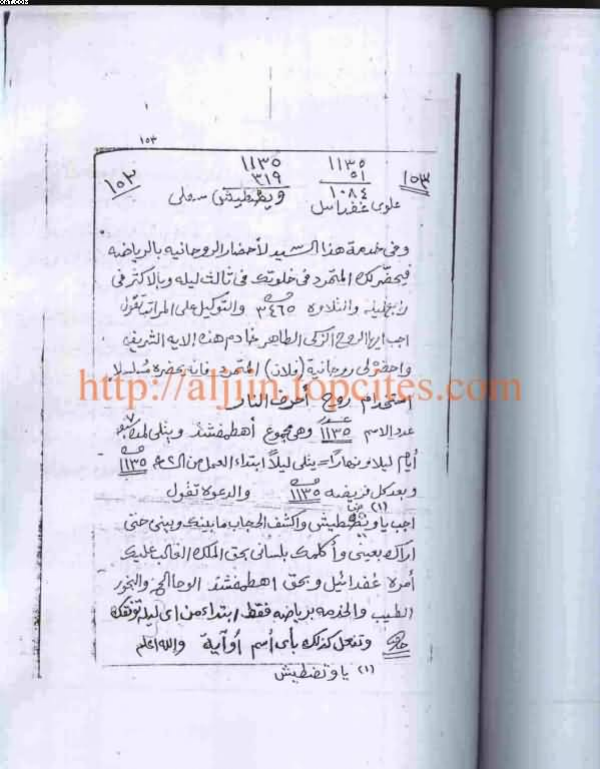 ١٥٣
١٥٣
١١٣٥
٥١
١٠٨٤
علوى
١١٣٥
٣١٩
سفلى
١٥٣
وفى خدمة هذا السيد لأحضار الروحانيه بالرياضه
فيحضر لك المتمرد فى خلوتك فى ثالث ليله وبالاكثر فى
رابع ليله والتلاوه ٣٤٦٥ والتوكيل على المراتب تقول
اجب ايها الروح الزكى الطاهر خادم هذه الايه الشريفه
واحضر لى روحانية (فلان) المتمرد فانه يحضره مسلسلا
http://aljiin.topcites.com
استخدام روح أحرف النار
عدد الاسم ١١٣٥ وهو مجموع أهطمفشذ ويتلى لمدة ٧
أيام ليلا ونهارا = يتلى ليلاً ابتداء العمل من ١١٣٥
وبعد كل فريضه ١١٣٥ والدعوة تقول
(١)
اجب يا واكشف الحجاب ما بينك وبينى حتى
اراك بعينى وأكلمك بلسانى بحق الملك الغالب عليك
أمره وبحق اهطمفشذ الوحا والبخور
الطيب والخدمه برياضه فقط ابتداء من اى ليله توفقك
وتفعل كذلك بأى أسم أو آية والله اعلم
(١) يا وتضطيش